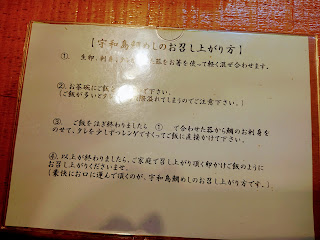 【宇和島鯛めしのお召し上がり方】
①. 生卵、刺身、タレ 蕊をお箸を使って軽く混ぜ合わせます。
②. お茶碗にご飯を 下さい。
(ご飯が多いとタレ 際溢れてしまうのでご注意下さい。)
③. ご飯をほぎ終わりましたら ① で合わせた蕊から鯛のお刺身を
のせて、タレを少しずつレンゲですくってご飯に直接かけて下さい。
④. 以上が終わりましたら、ご家庭で召し上がり頂く卵かけご飯のように
お召し上がりくださいませ。
(豪快にお口に運んで頂くのが、宇和島鯛めしの召し上がり方です。)